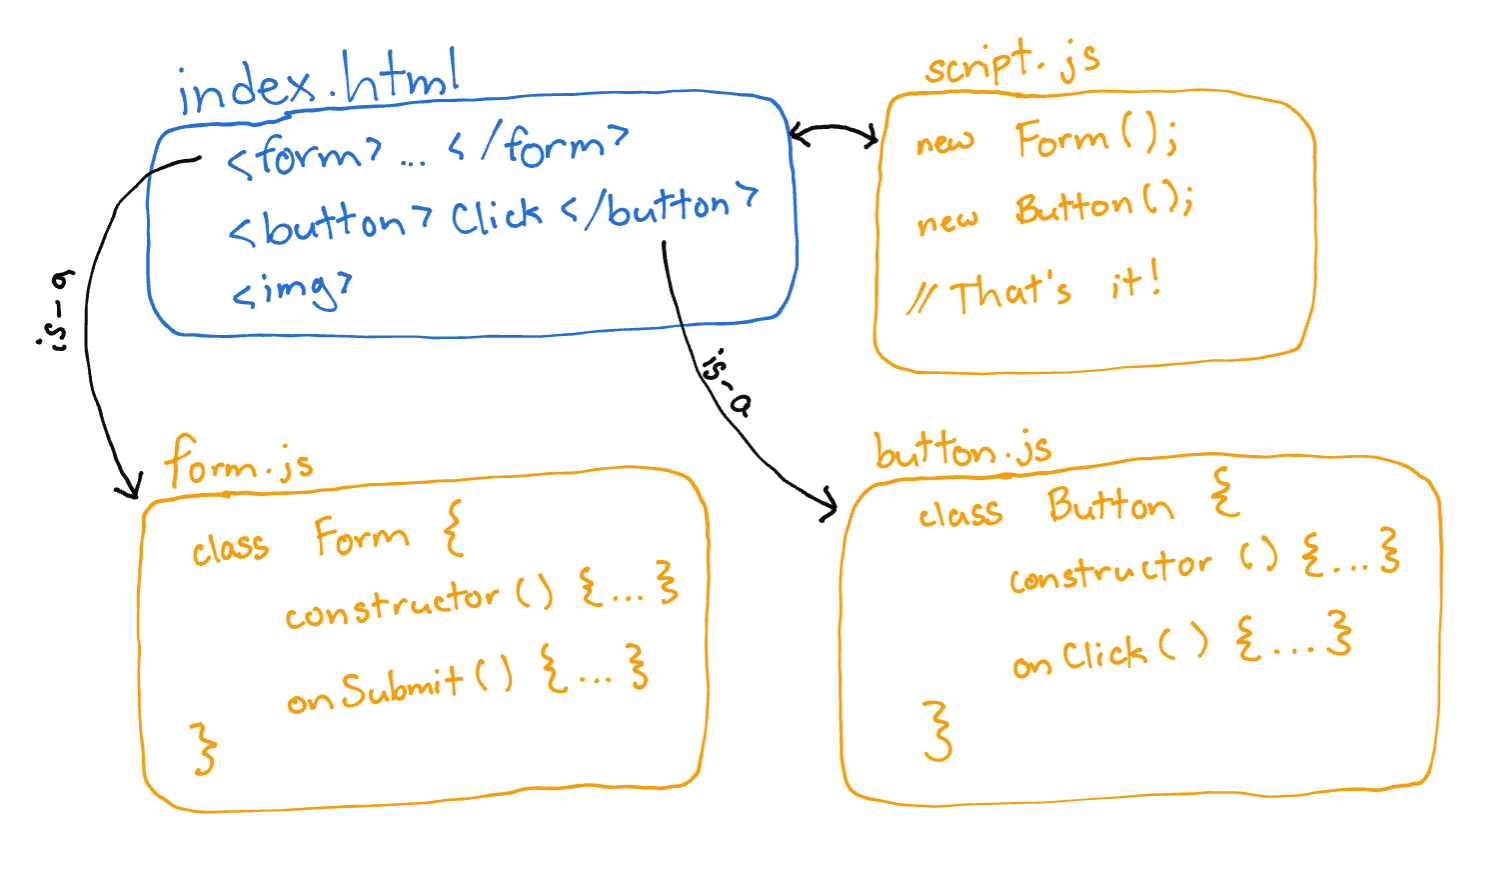 index.html
<form> ... </form>
<button> Click </button>
<img>
script.js
new Form();
new Button();
// That's it!
is-a
is-a
form.js
class Form {
constructor () {...}
onSubmit () {...}
}
button.js
class Button {
constructor () {...}
onClick () {...}
}